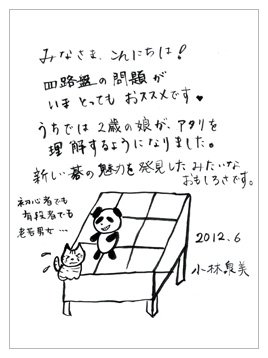 みなさま、こんにちは!
四路盤の問題が
いま とっても おススメです♥
うちでは 2歳の娘が、アタリを
理解するようになりました。
新しい碁の魅力を発見したみたいな
おもしろさです。
初心者でも
有段者でも
老若男女…
2012.6
小林泉美